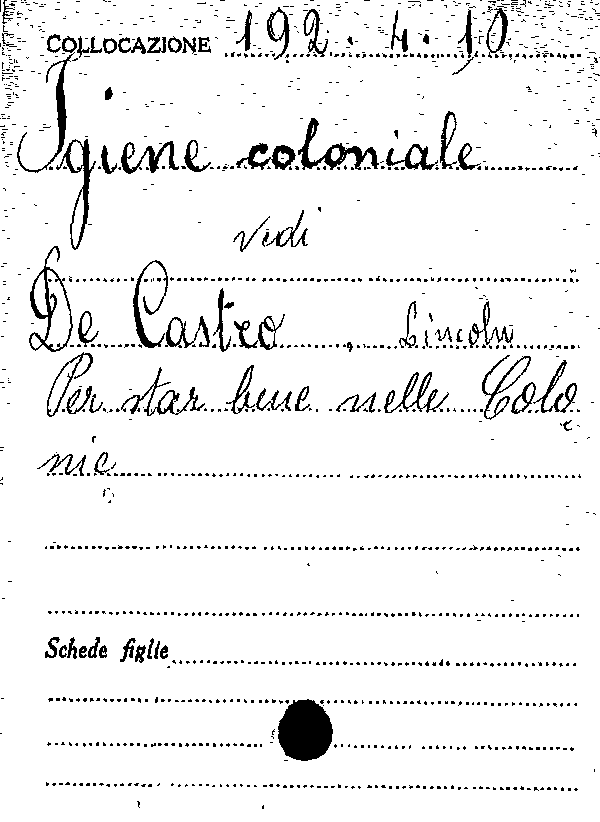 COLLOCAZIONE 192.4.10
Igiene coloniale
vedi
De Castro, Lincoln
Per star bene nelle Colo
nie
Schede figlie